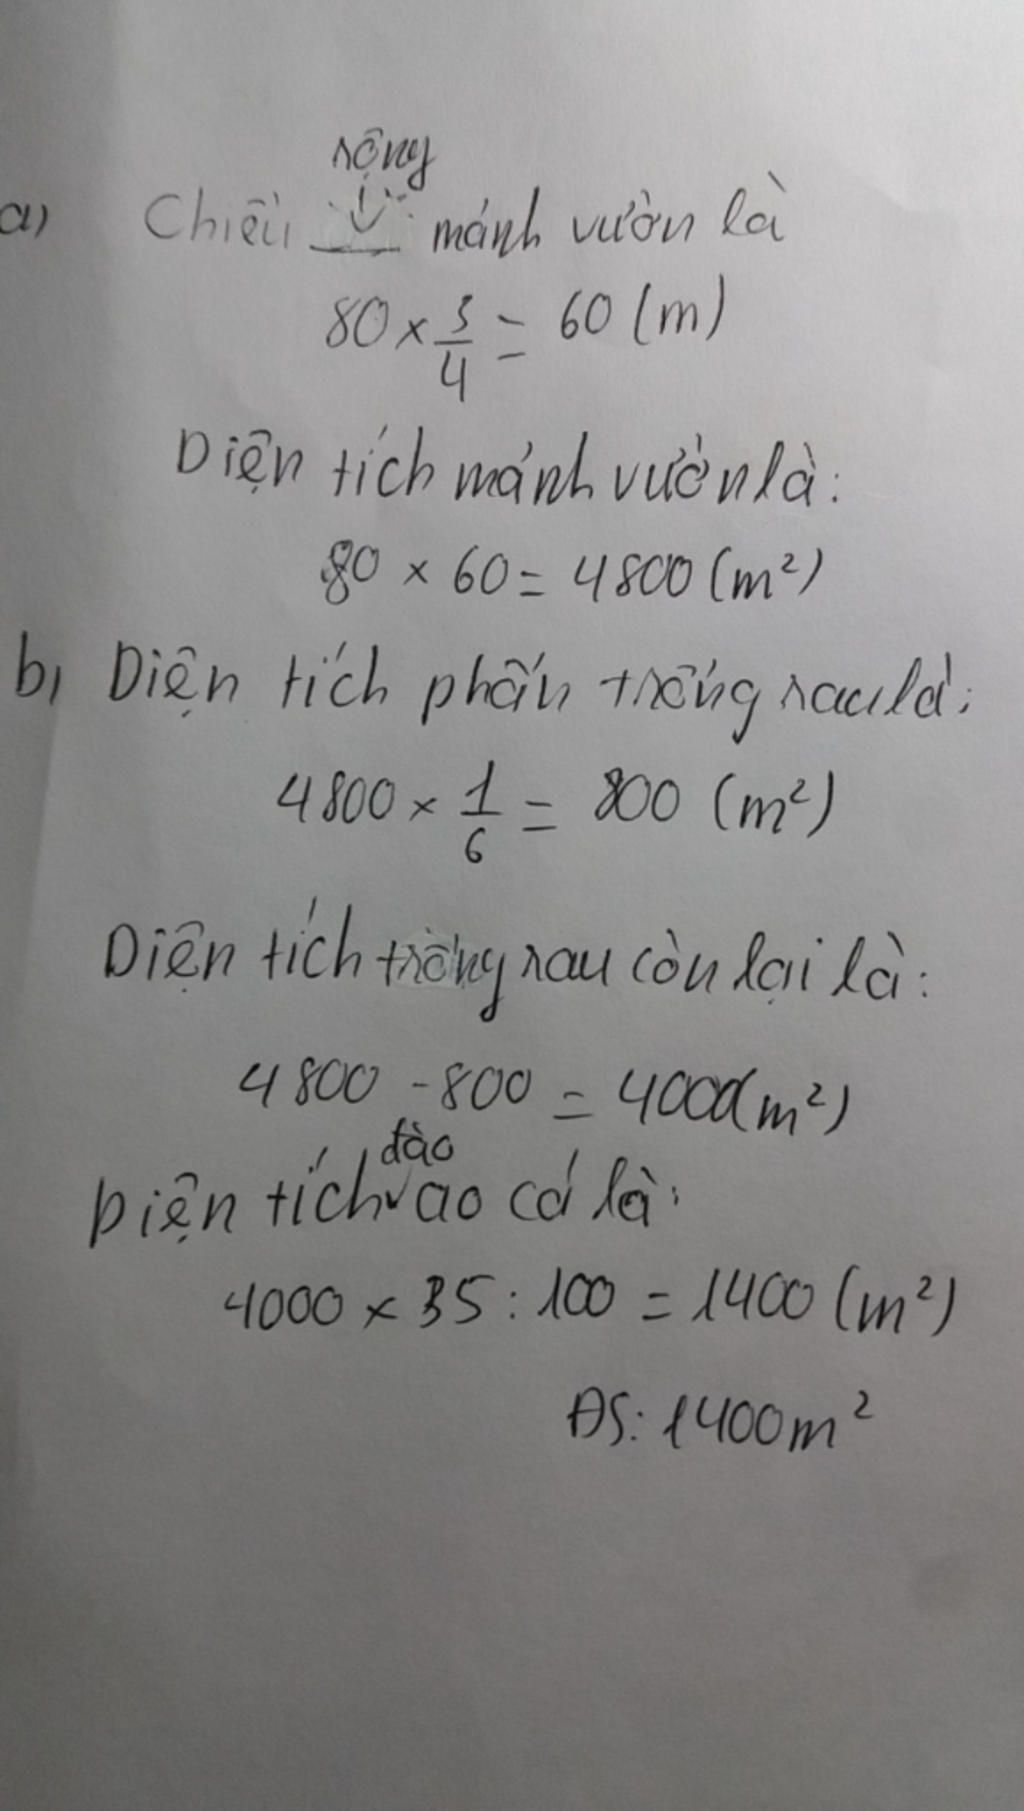 rộng
a) Chiều mảnh vườn là
80 × 3/4 = 60 (m)
Diện tích mảnh vườn là:
80 × 60 = 4800 (m²)
b) Diện tích phần trồng rau là:
4800 × 1/6 = 800 (m²)
Diện tích trồng rau còn lại là:
4800 - 800 = 4000(m²)
đào
Diện tích ao cá là:
4000 × 35 : 100 = 1400 (m²)
ĐS: 1400m²